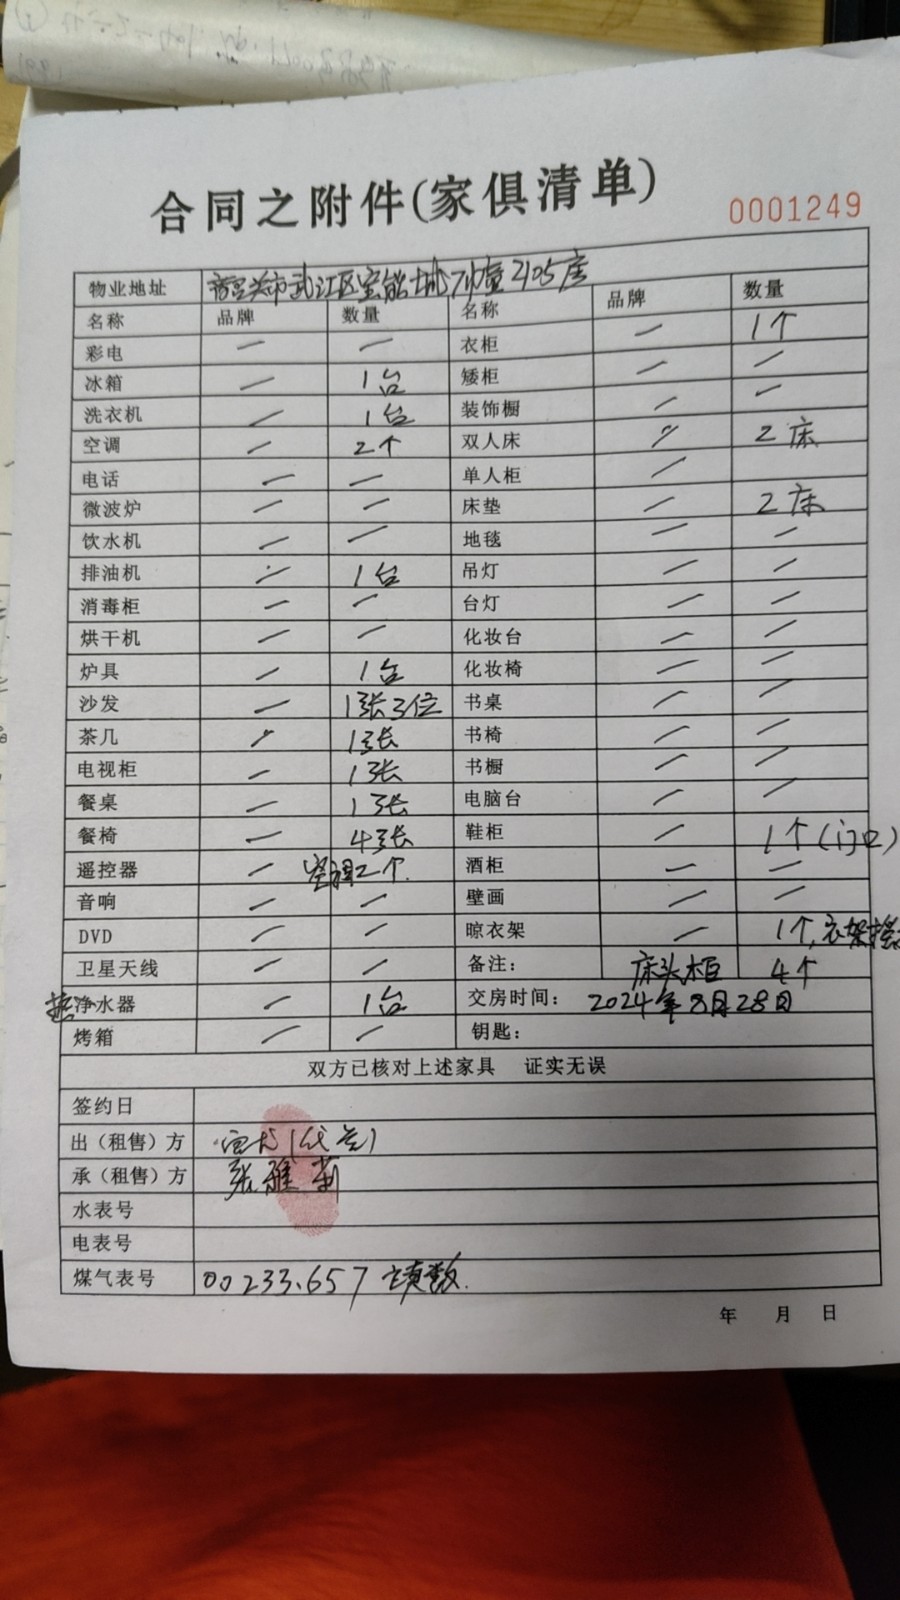 合同之附件(家俱清单)
0001249
物业地址 韶关市武江区宝能城 2105房
名称 品牌 数量 名称 品牌 数量
彩电 — — 衣柜 — 1个
冰箱 — 1台 矮柜 — —
洗衣机 — 1台 装饰橱 — —
空调 — 2个 双人床 — 2床
电话 — — 单人柜 —
微波炉 — — 床垫 — 2床
饮水机 — — 地毯 — —
排油机 — 1台 吊灯 — —
消毒柜 — — 台灯 — —
烘干机 — — 化妆台 — —
炉具 — 1台 化妆椅 — —
沙发 — 1张3位 书桌 — —
茶几 — 1张 书椅 — —
电视柜 — 1张 书橱 — —
餐桌 — 1张 电脑台 — —
餐椅 — 4张 鞋柜 — 1个(门口)
遥控器 — 空调二个. 酒柜 — —
音响 — — 壁画 — —
DVD — — 晾衣架 — 1个,衣架
卫星天线 — — 备注: 床头柜 4个
净水器 — 1台 交房时间: 2024年8月28日
烤箱 — — 钥匙:
双方已核对上述家具 证实无误
签约日
出(租售)方 (代签)
承(租售)方 张雅莉
水表号
电表号
煤气表号 00233.657 读数.
年 月 日